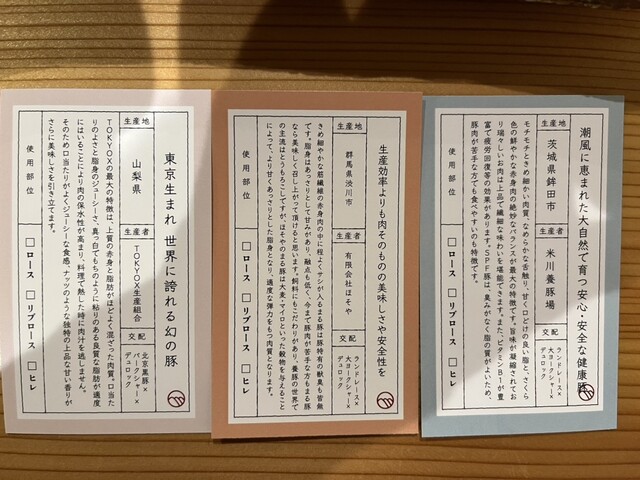 潮風に恵まれた大自然で育つ安心・安全な健康豚
生産地
茨城県鉾田市
生産者
米川養豚場
交配
ランドレース×
大ヨークシャー×
デュロック
モチモチときめ細かい肉質、なめらかな舌触り、甘く口どけの良い脂と、さくら
色の鮮やかな赤身肉の絶妙なバランスが最大の特徴です。旨味が凝縮されてお
り瑞々しいお肉は上品で繊細な味わいを堪能できます。また、ビタミンB1が豊
富で疲労回復等の効果があります。SPF豚は、臭みがなく脂の質がよいため、
豚肉が苦手な方でも食べやすいのも特徴です。
使用部位
□ロース
□リブロース
□ヒレ
生産効率よりも肉そのものの美味しさや安全性を
生産地
群馬県渋川市
生産者
有限会社ほそや
交配
ランドレース×
大ヨークシャー×
デュロック
きめ細やかな筋繊維の赤身肉の中に程よくサシが入るまる豚は豚特有の獣臭も皆無
です。脂身はあっさりと甘みがあり、融点も低く、今まで豚肉が苦手な方もまる豚
なら美味しく召し上がって頂けると思います。飼料にもこだわりがあり、養豚の世界で
の主流はとうもろこしですが、ほそやのまる豚は大麦・マイロといった穀物を与えること
によって、より甘くあっさりとした脂身となり、適度な弾力をもつ肉質となります。
使用部位
□ロース
□リブロース
□ヒレ
東京生まれ 世界に誇れる幻の豚
生産地
山梨県
生産者
TOKYOX生産組合
交配
北京黒豚×
バークシャー×
デュロック
TOKYOXの最大の特徴は、上質の赤身と脂肪がほどよく混ざった肉質。口当た
りのよさと脂身のジューシーさ、真っ白でもちのように粘りのある良質な脂肪が適度
にはいることにより肉の保水性が高まり、料理で熱した時に肉汁を逃しません。
そのため口当たりがよくジューシーな食感、ナッツのような独特の上品な甘い香りが
さらに美味しさを引き立てます。
使用部位
□ロース
□リブロース
□ヒレ